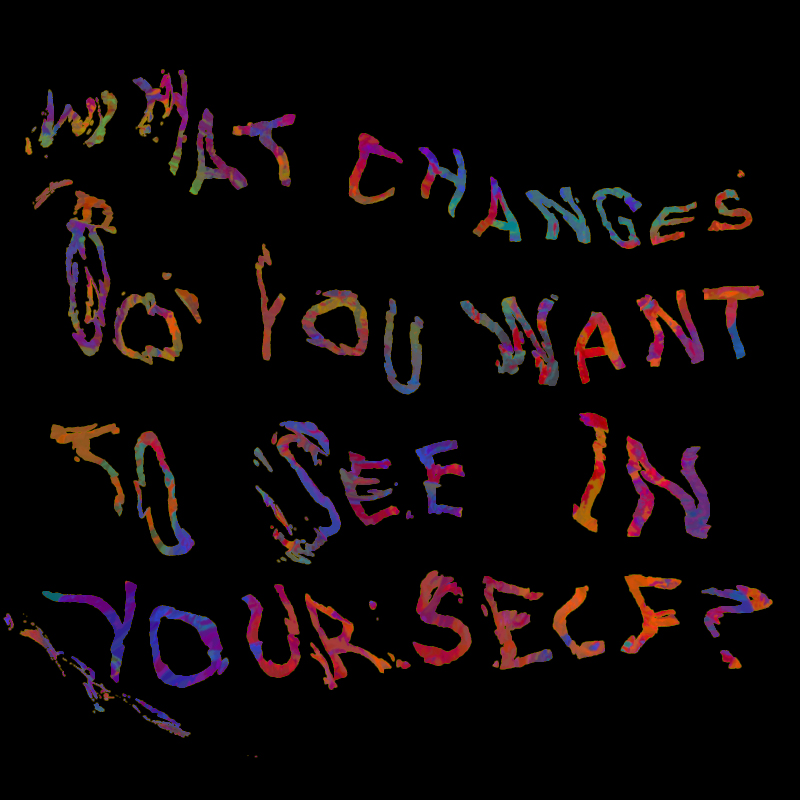 WHAT CHANGES
DO YOU WANT
TO SEE IN
YOURSELF?